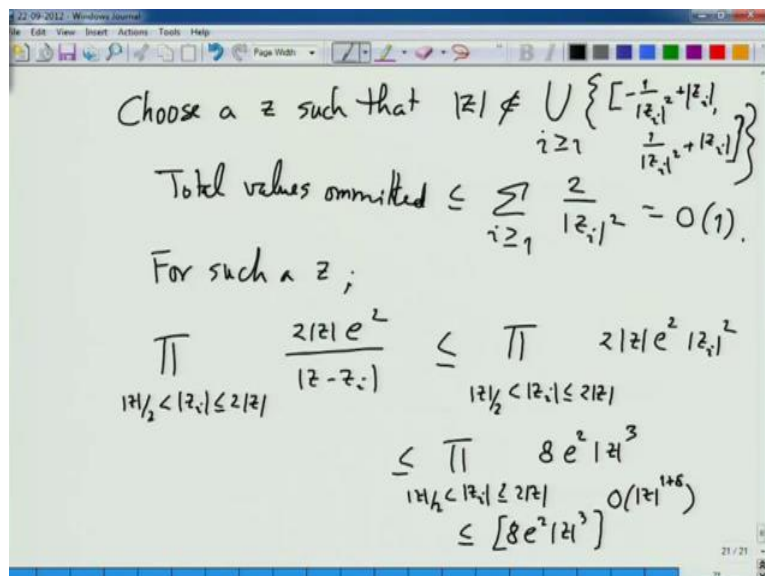 22-09-2012 - Windows Journal
File Edit View Insert Actions Tools Help
Page Width
Choose a z such that |z| ∉ ⋃_{i≥1} { [ -1/|z_i|^2 + |z_i|,
1/|z_i|^2 + |z_i| ] }
Total values ommitted ≤ Σ_{i≥1} 2/|z_i|^2 = O(1).
For such a z ;
∏_{|z|/2 < |z_i| ≤ 2|z|} 2|z| e^2 / |z - z_i| ≤ ∏_{|z|/2 < |z_i| ≤ 2|z|} 2|z| e^2 |z_i|^2
≤ ∏_{|z|/2 < |z_i| ≤ 2|z|} 8 e^2 |z|^3
≤ [8e^2 |z|^3]^{O(|z|^{1+ε})}
21 / 21